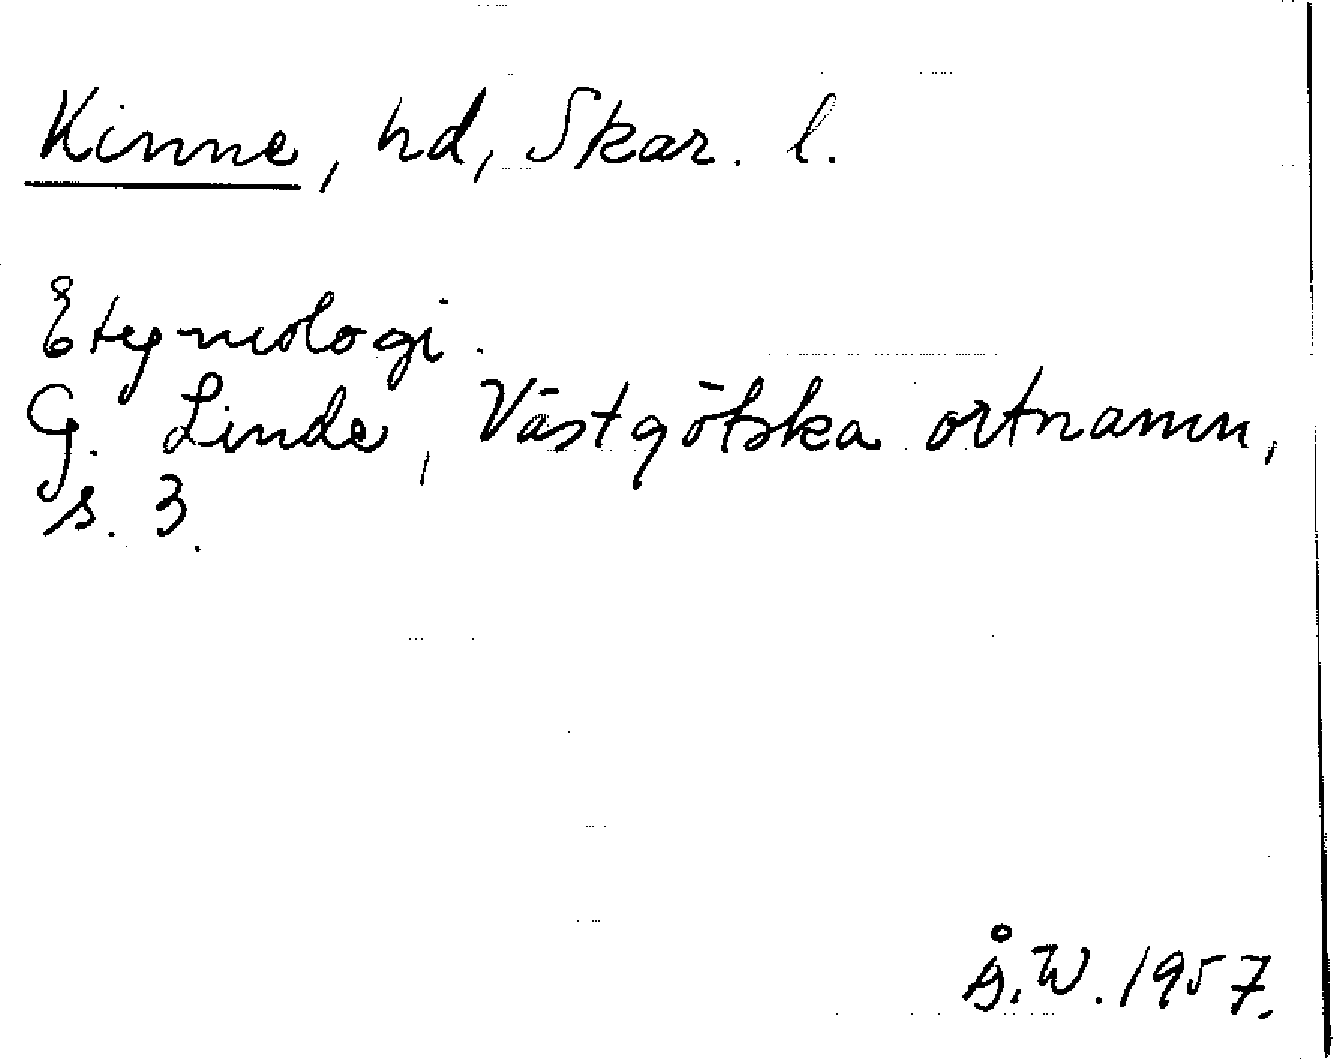 Kinne, hd, Skar. l.
Etymologi.
G. Linde, Västgötska ortnamn,
s. 3.
Å.W. 1957.